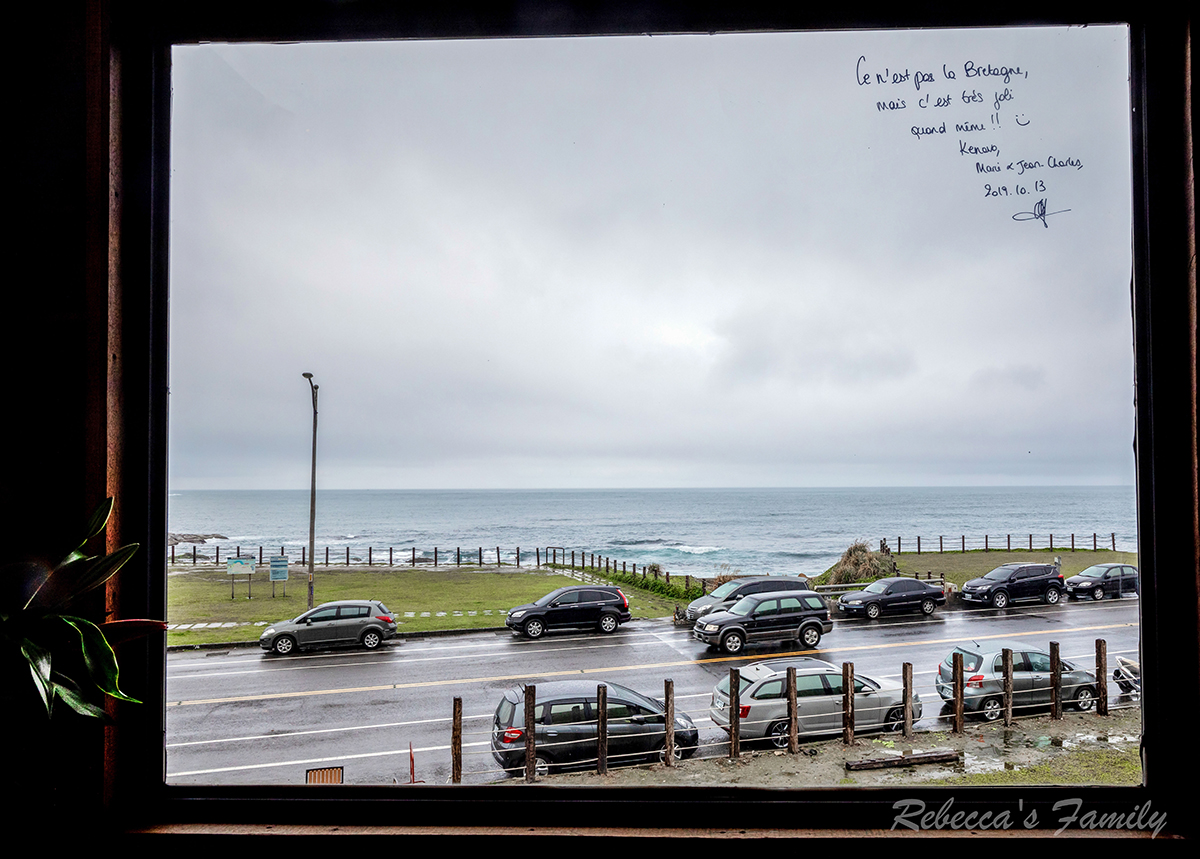 Ce n'est pas la Bretagne,
mais c'est très joli
quand même !!
Kenavo,
Marie & Jean-Charles,
2019.10.13
Rebecca's Family